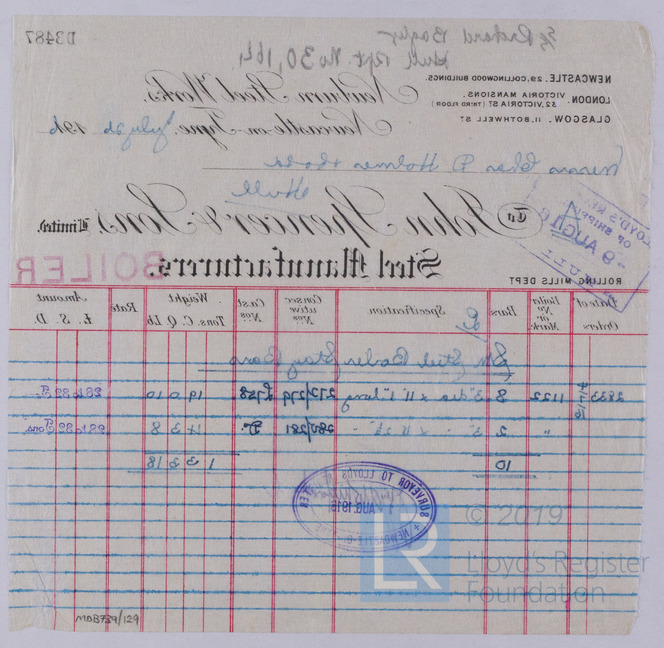 S/S Richard Bagley
Hull Rpt. No 30,164
D3487
NEWCASTLE. 29, COLLINGWOOD BUILDINGS.
LONDON. VICTORIA MANSIONS.
32, VICTORIA ST (THIRD FLOOR)
GLASGOW. 11, BOTHWELL ST
Newburn Steel Works.
Newcastle-on-Tyne, July 26 191
Messrs Chas D Holmes & Co Ld
Hull
To John Spencer & Sons, Limited.
Steel Manufacturers.
LLOYD'S
OF SHIPPING
9 AUG
HULL
BOILER
ROLLING MILLS DEPT
Date of Orders
Build. No or Mark.
Bars
Specification
Consecutive Nos
Cast Nos
Weight
Tons. C. Q. Lb
Rate
Amount
£. S. D.
SM Steel Boiler Stay Bars
2833 1122 8 3" dia x 11' long 272/279 19 0 10
" 2 3" - x 280/281 Do 4 3 8
10 1 3 3 18
SURVEYOR TO LLOYDS REGISTER
AUG. 1916
NEWCASTLE-ON-TYNE
LR
© 2019
Lloyd's Register
Foundation
MOB739/129